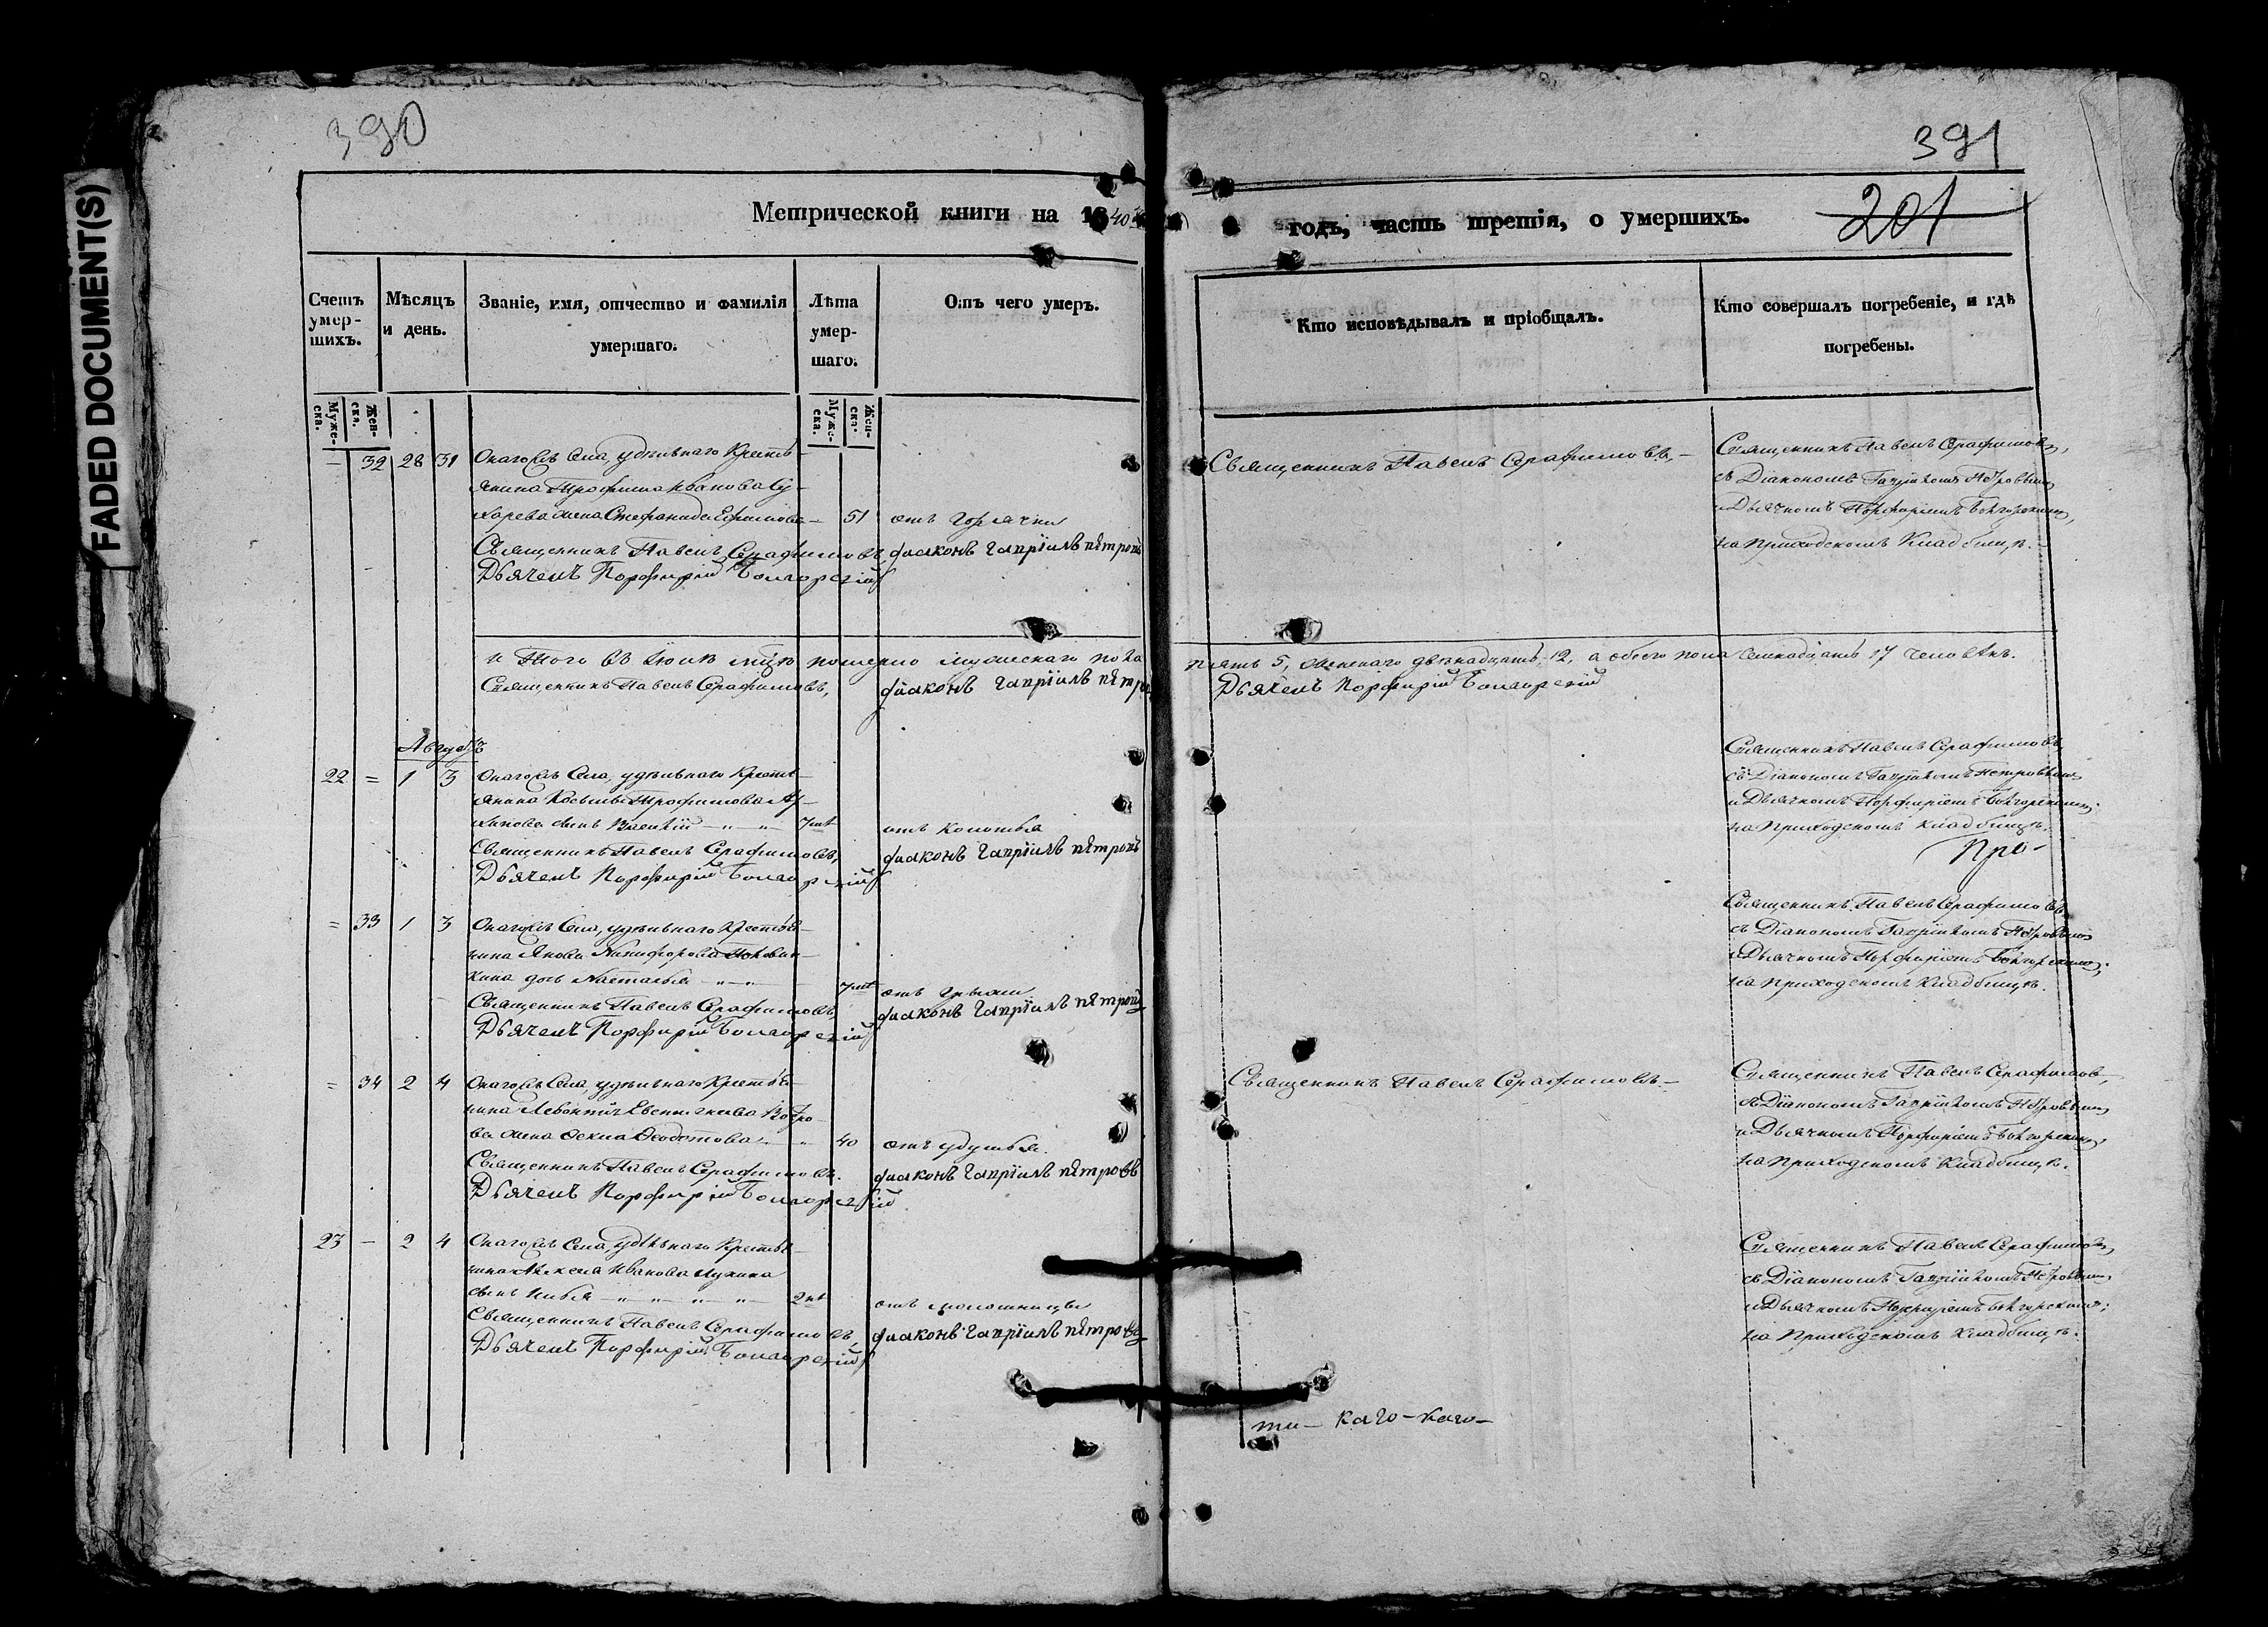 FADED DOCUMENT(S)
390
391
201
Метрической книги на 1840
годъ, часть третія, о умершихъ.
Счетъ умер-шихъ.
Мѣсяцъ и день.
Званіе, имя, отчество и фамилія умершаго.
Лѣта умер-шаго.
Отъ чего умеръ.
Кто исповѣдывалъ и пріобщалъ.
Кто совершалъ погребеніе, и гдѣ погребены.
Муже-ска.
Жен-ска.
Муже-ска.
Жен-ска.
— 32 28 31 Онагожъ Села, удѣльнаго Крестья-
янина Трофима Иванова Су-
харева жена Стефанида Ефимова — 51 отъ горячки
Священникъ Павелъ Серафимовъ, диаконъ Гавріилъ Петровъ
Дьячекъ Порфирій
Священникъ Павелъ Серафимовъ,—
Священникъ Павелъ Серафимовъ,
съ Діакономъ Гавріиломъ Петровымъ
и Дьячкомъ Порфиріемъ
на приходскомъ Кладбищѣ.
и Того въ Іюлѣ мцѣ померло мужескаго пола
пять 5, женскаго двѣнадцать 12, а обоего пола семнадцать 17 человѣкъ.
Священникъ Павелъ Серафимовъ, диаконъ Гавріилъ Петровъ
Дьячекъ Порфирій
Августъ
22 = 1 3 Онагожъ Села, удѣльнаго Крестья-
янина Косьмы Трофимова
сынъ Василій — " — " — 7 отъ колотья
Священникъ Павелъ Серафимовъ, диаконъ Гавріилъ Петровъ
Дьячекъ Порфирій
Священникъ Павелъ Серафимовъ,
съ Діакономъ Гавріиломъ Петровымъ
и Дьячкомъ Порфиріемъ
на приходскомъ кладбищѣ.
Про-
= 33 1 3 Онагожъ Села, удѣльнаго Крестья-
нина Якова Никифорова
кина дочь Наталья — " — " — 7 отъ грыжи
Священникъ Павелъ Серафимовъ, диаконъ Гавріилъ Петровъ
Дьячекъ Порфирій
Священникъ Павелъ Серафимовъ,
съ Діакономъ Гавріиломъ Петровымъ
и Дьячкомъ Порфиріемъ
на приходскомъ Кладбищѣ.
= 34 2 4 Онагожъ Села, удѣльнаго Крестья-
нина
ва жена Фекла Федотова — " 40 отъ удушья.
Священникъ Павелъ Серафимовъ. диаконъ Гавріилъ Петровъ
Дьячекъ Порфирій
Священникъ Павелъ Серафимовъ.—
Священникъ Павелъ Серафимовъ,
съ Діакономъ Гавріиломъ Петровымъ
и Дьячкомъ Порфиріемъ
на приходскомъ Кладбищѣ.
23 — 2 4 Онагожъ Села, удѣльнаго Крестья-
нина Алексѣя Иванова Лукина
сынъ Илья — " — " — " — " — 2 отъ молошницы
Священникъ Павелъ Серафимовъ, диаконъ Гавріилъ Петровъ
Дьячекъ Порфирій
Священникъ Павелъ Серафимовъ,
съ Діакономъ Гавріиломъ Петровымъ
и Дьячкомъ Порфиріемъ
на приходскомъ кладбищѣ.
ти — каго — каго —